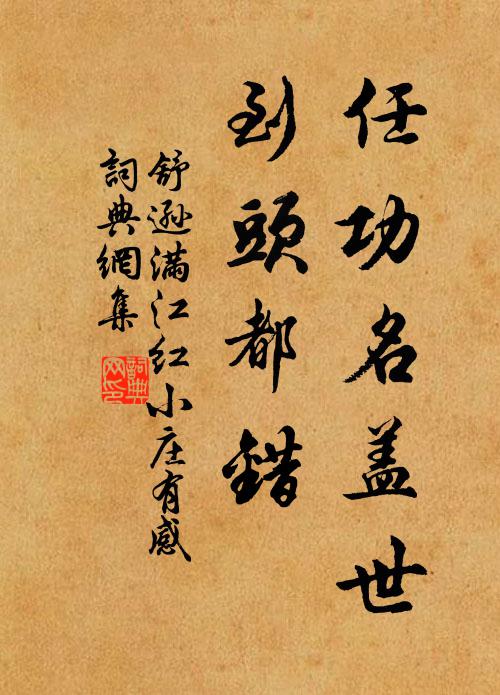 任功名盖世
到頭都錯
舒遜满江红小庄有感
詞典網集
詞典
网印